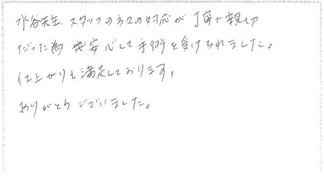 水谷先生、スタッフの方々の対応が丁寧で親切
だった為 安心して手術を受けられました。
仕上がりも満足しております。
ありがとうございました。